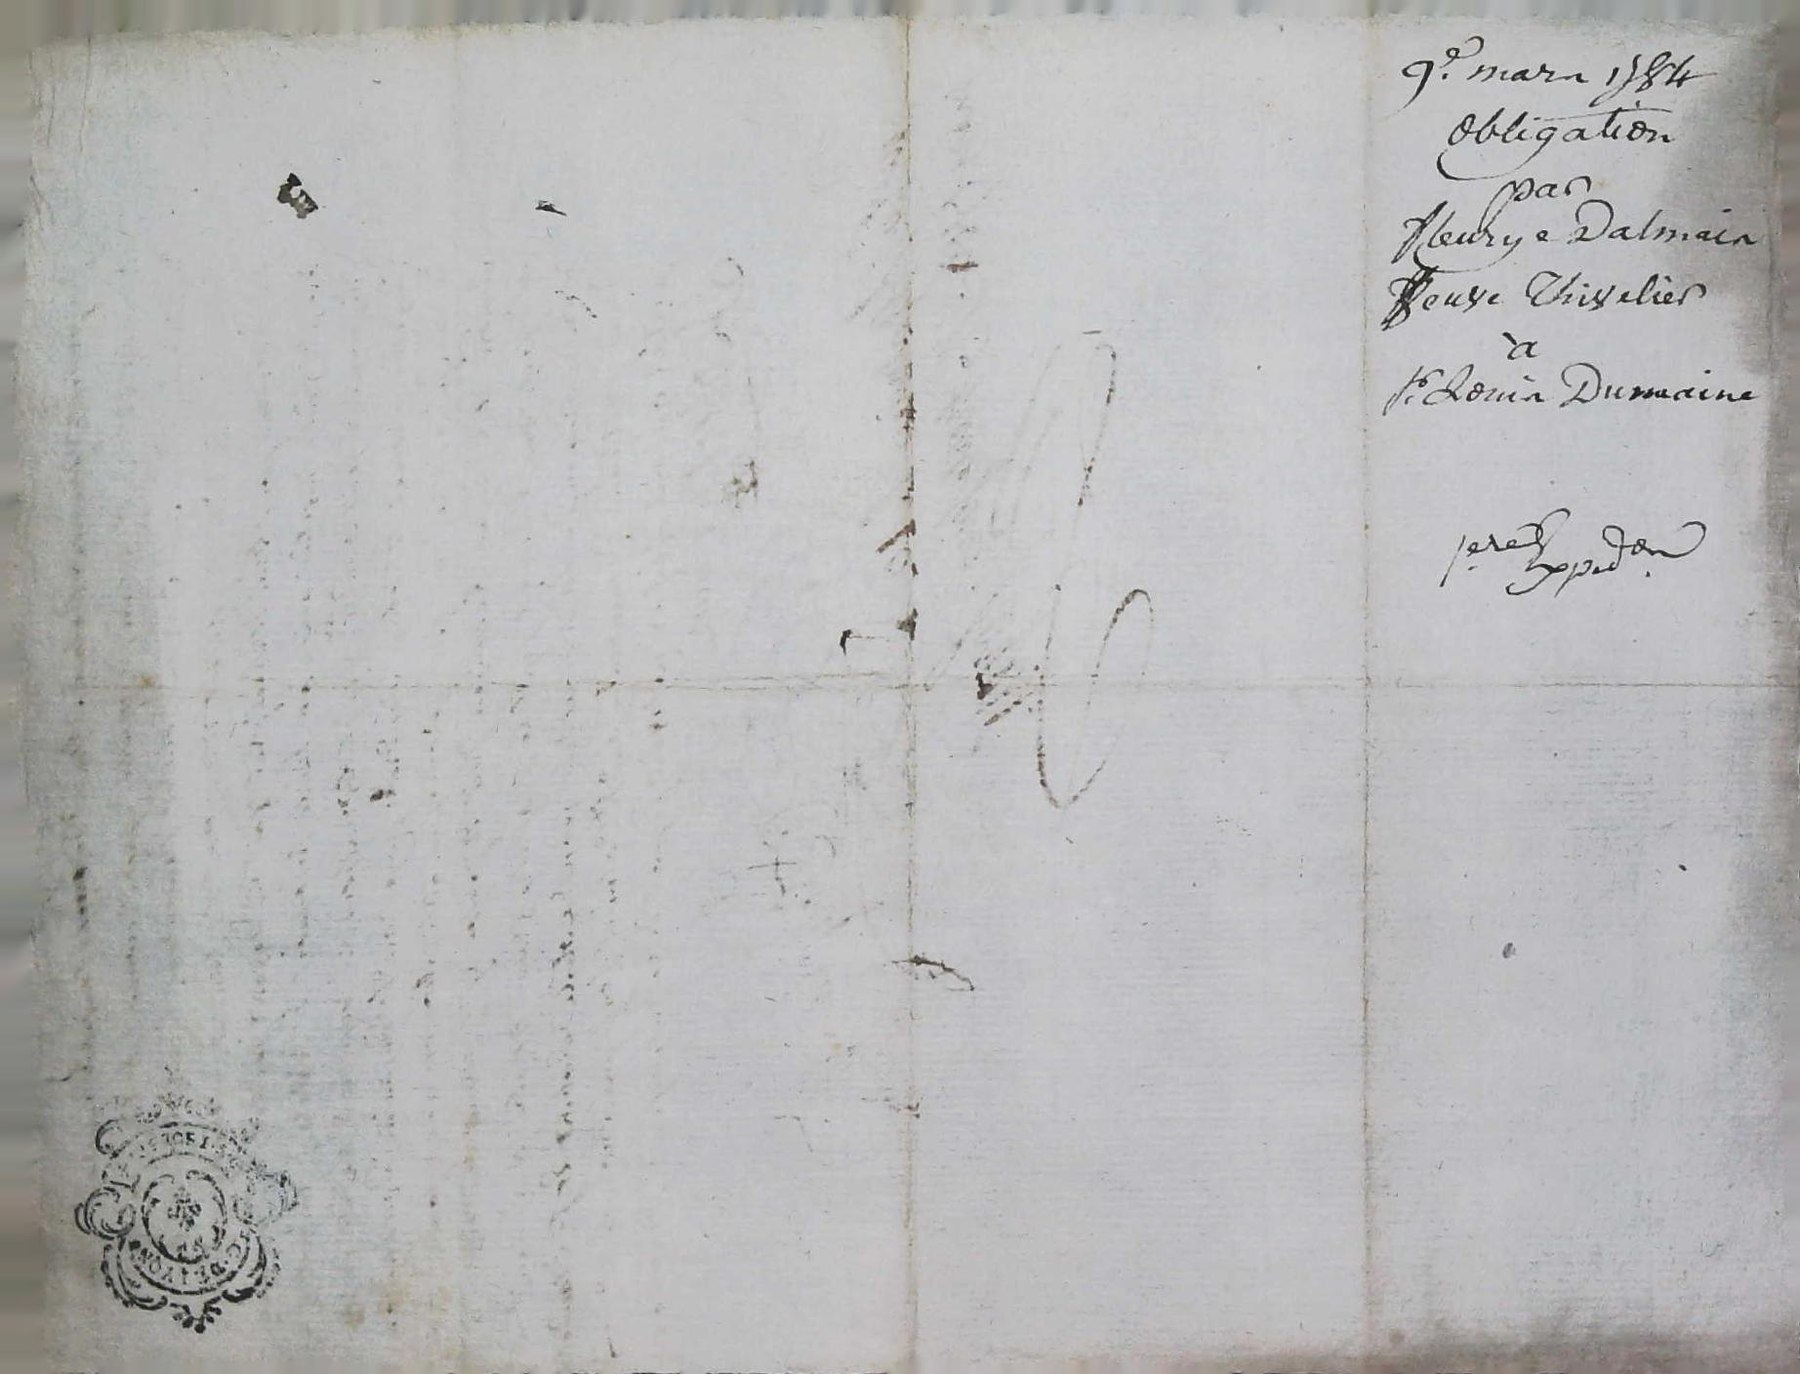 9e. mars 1784
obligation
par
fleurye Dalmais
Veuve Thivelier
à
sr. Louis Dumaine
1ere Exp.don.
C. DE LYON